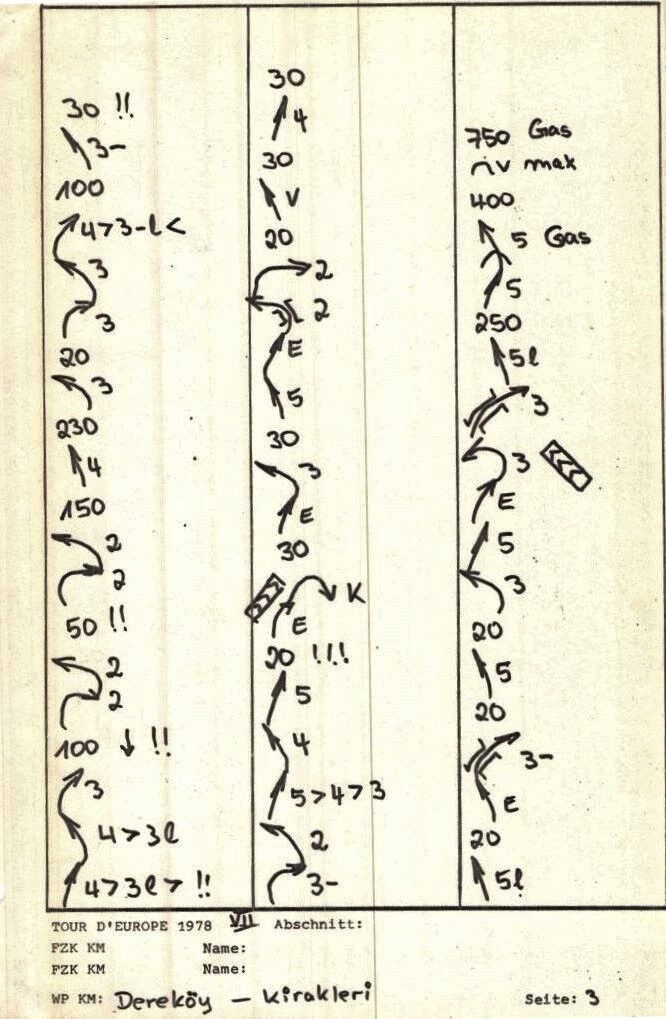 30 !!
3-
100
4>3-l<
3
3
20
3
230
4
150
2
2
50 !!
2
2
100 ↓ !!
3
4>3l
4>3l> !!
30
4
30
V
20
2
2
E
5
30
3
E
30
K
E
20 !!!
5
4
5>4>3
2
3-
750 Gas
max
400
5 Gas
5
250
5l
3
3
E
5
3
20
5
20
3-
E
20
5l
TOUR D'EUROPE 1978 VII Abschnitt:
FZK KM Name:
FZK KM Name:
WP KM: Dereköy - Kirakleri Seite: 3